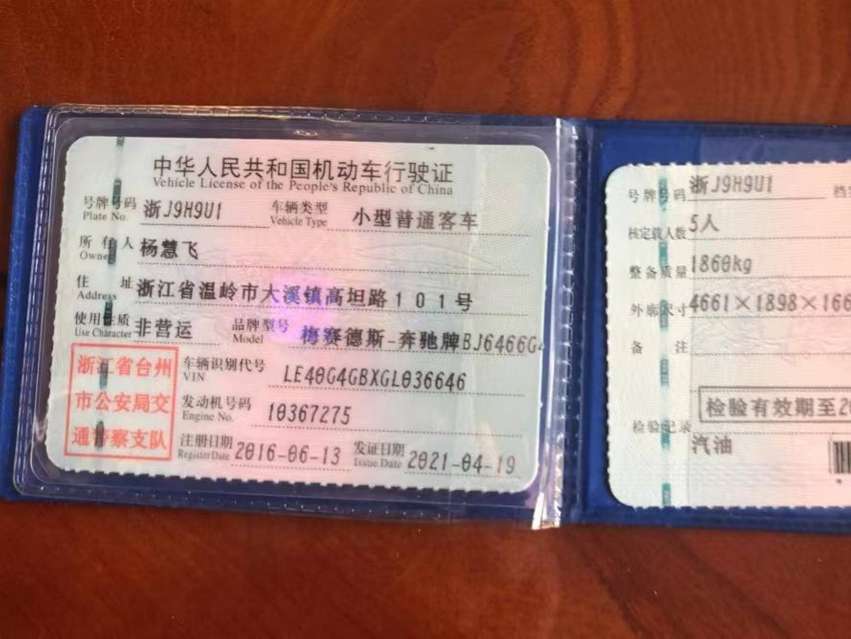 中华人民共和国机动车行驶证
Vehicle License of the People's Republic of China
号牌号码 浙J9H9U1 车辆类型 小型普通客车
Plate No. Vehicle Type
所有人 杨慧飞
Owner
住址 浙江省温岭市大溪镇高坦路101号
Address
使用性质 非营运 品牌型号 梅赛德斯-奔驰牌BJ6466G4
Use Character Model
浙江省台州
市公安局交
通警察支队
车辆识别代号 LE40G4GBXGL036646
VIN
发动机号码 10367275
Engine No.
注册日期 2016-06-13 发证日期 2021-04-19
Register Date Issue Date
号牌号码 浙J9H9U1 档
核定载人数 5人
整备质量 1860kg
外廓尺寸 4661×1898×166
备注
检验有效期至20
检验记录
汽油